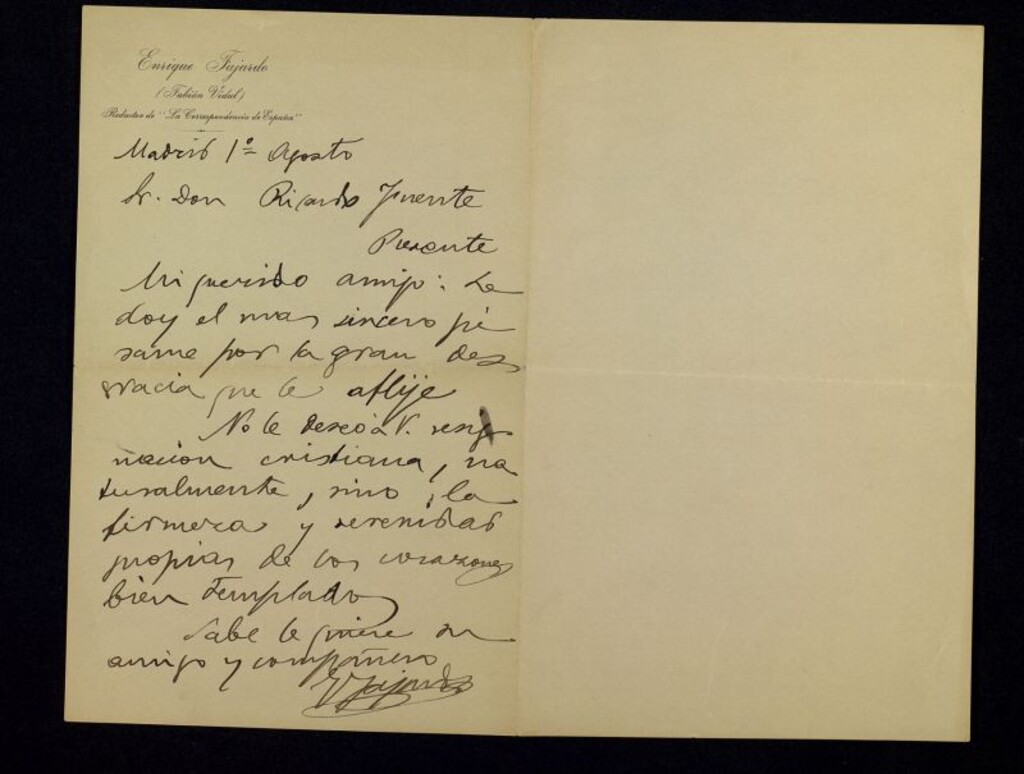 Enrique Fajardo
(Fabián Vidal)
Redactor de "La Correspondencia de España"
Madrid 1º Agosto
Sr. Don Ricardo Fuente
Presente
Mi querido amigo: Le
doy el mas sincero pé
same por la gran des
gracia que le aflije
No le deseo a V. resig
nacion cristiana, na
turalmente, sino la
firmeza y serenidad
propias de los corazones
bien templados
Sabe le quiere su
amigo y compañero
E Fajardo